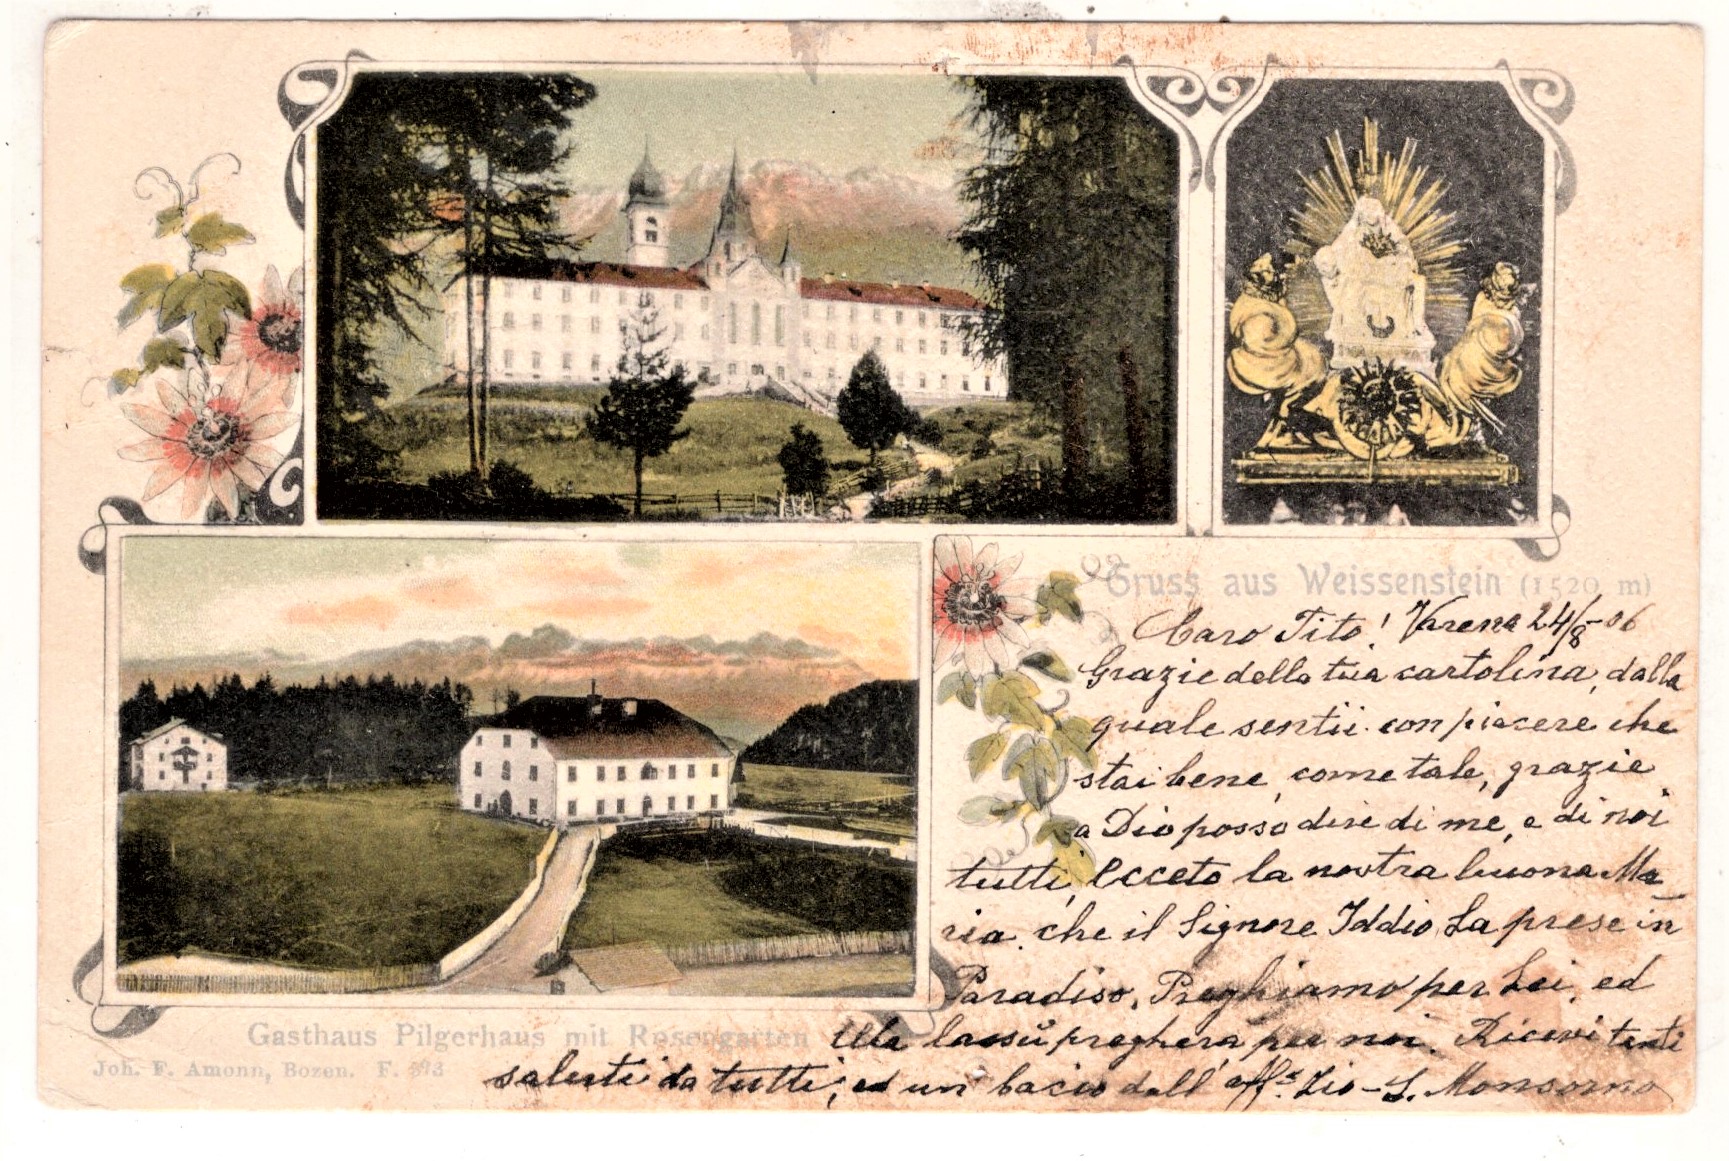 Gruss aus Weissenstein (1520 m)
Caro Tito! Varena 24/8-06
Grazie della tua cartolina, dalla
quale sentii con piacere che
stai bene, come tale, grazie
a Dio posso dire di me, e di noi
tutti, Ecceto la nostra buona Ma
ria. che il Signore Iddio La prese in
Paradiso. Preghiamo per Lei, ed
Ella lassù pregherà per noi. Ricevi tanti
saluti da tutti, ed un bacio dall' aff. Zio - S. Monsorno
Gasthaus Pilgerhaus mit Rosengarten
Joh. F. Amonn, Bozen. F.